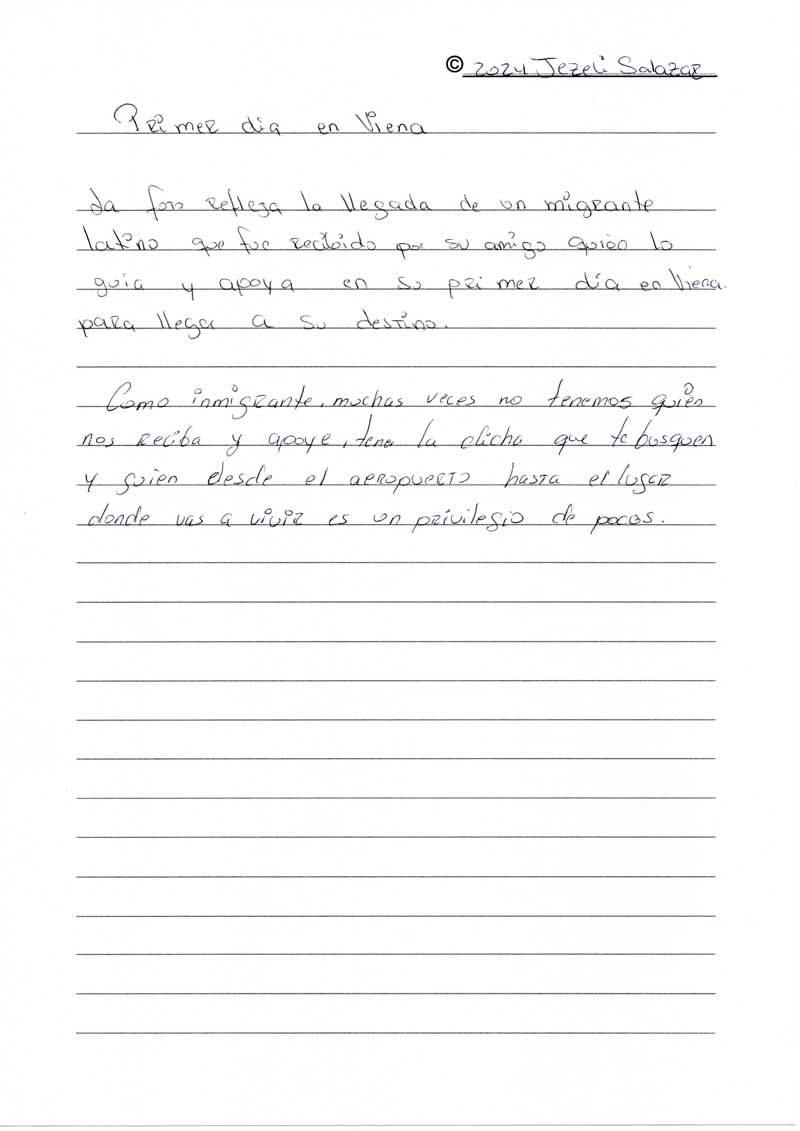 © 2024 Jezeli Salazar
Primer dia en Viena
La foto refleja la llegada de un migrante
latino que fue recibido por su amigo quien lo
guia y apoya en su primer día en Viena.
para llegar a su destino.
Como inmigrante, muchas veces no tenemos quien
nos reciba y apoye, tener la dicha que te busquen
y guien desde el aeropuerto hasta el lugar
donde vas a vivir es un privilegio de pocos.